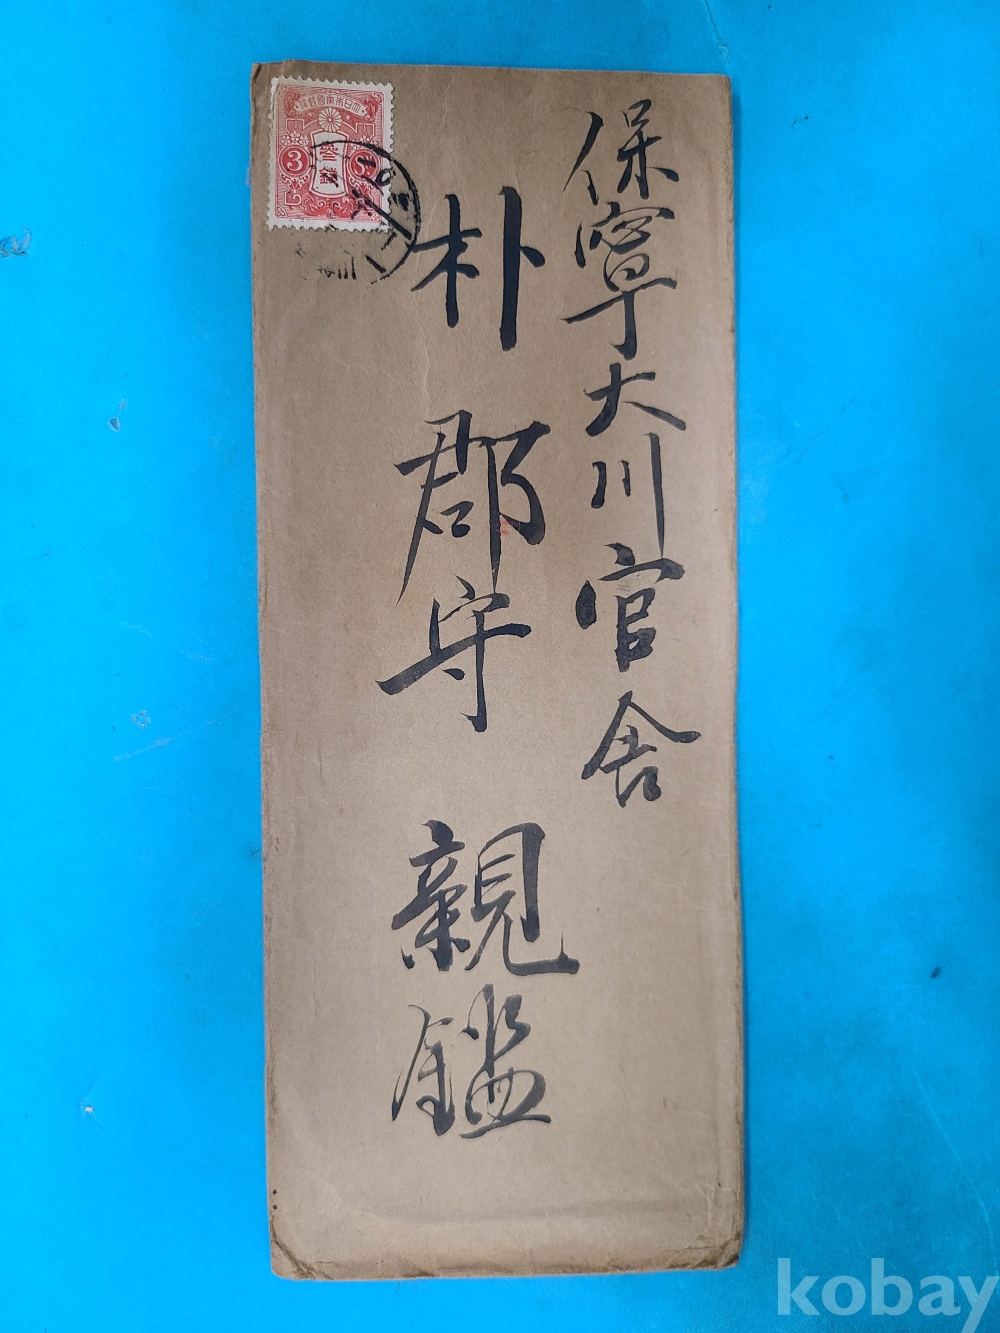 保寧大川官舍
朴郡守 親鑑
大日本帝國郵便
參錢
3
Sn.
kobay